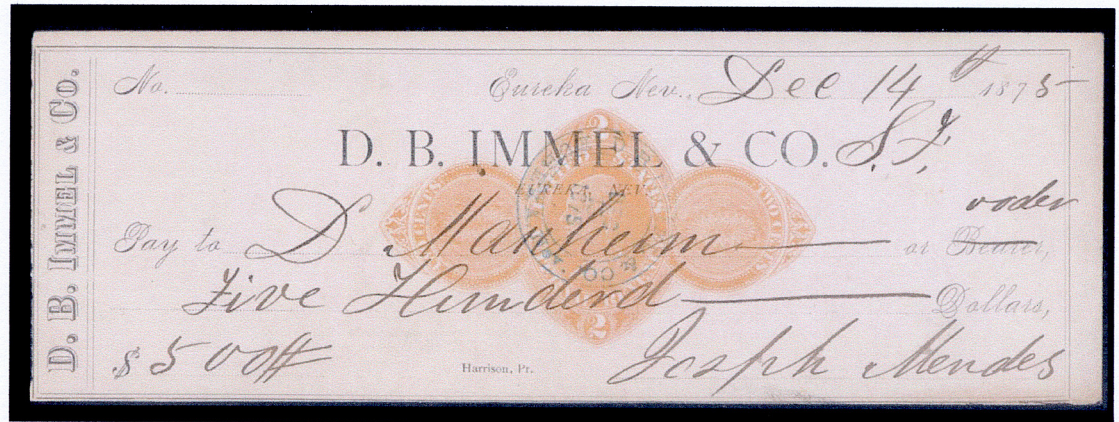 D. B. IMMEL & Co.
No. Eureka Nev., Dec 14th 1875
D. B. IMMEL & CO. S.F.
EUREKA, NEV.
Pay to D Manheim or Bearer, order
Five Hunderd Dollars,
$ 500#
Harrison, Pr.
Joseph Mendes
2
TWO CENTS
2